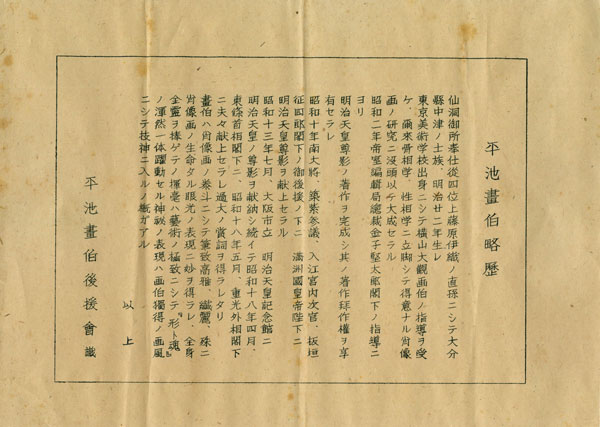 平池畫伯略歴
仙洞御所奉仕従四位上藤原伊織ノ直孫ニシテ大分
縣中津ノ士族、明治廿二年生レ
東京美術学校出身ニシテ横山大観画伯ノ指導ヲ受
ケ、爾來骨相学、性相学ニ立脚シテ得意ナル肖像
画ノ研究ニ没頭以テ大成セラル
昭和二年帝室編輯局總裁金子堅太郎閣下ノ指導ニ
ヨリ
明治天皇尊影ノ著作ヲ完成シ其ノ著作拝作權ヲ享
有セラレ
昭和十年南大將、築紫参議、入江宮内次官、板垣
征四郎閣下ノ御後援ノ下ニ 満洲國皇帝陛下ニ
明治天皇ノ尊影ヲ献上セラル
昭和十三年七月、大阪市立 明治天皇記念館ニ
明治天皇ノ尊影ヲ献納シ続イテ昭和十八年四月、
東條首相閣下ニ、昭和十八年五月、重光外相閣下
ニ夫々献上セラレ過大ノ賞詞ヲ得ラレタリ
畫伯ハ肖像画ノ泰斗ニシテ筆致高雅、纎麗、殊ニ
肖像画ノ生命タル眼光ノ表現ニ妙ヲ得ラレ、全身
全霊ヲ捧ゲテノ揮毫ハ藝術ノ極致ニシテ『形ト魂』
ノ渾然一体躍動セル神秘ノ表現ハ画伯獨得ノ画風
ニシテ技神ニ入ルノ概ガアル
以上
平池畫伯後援會識